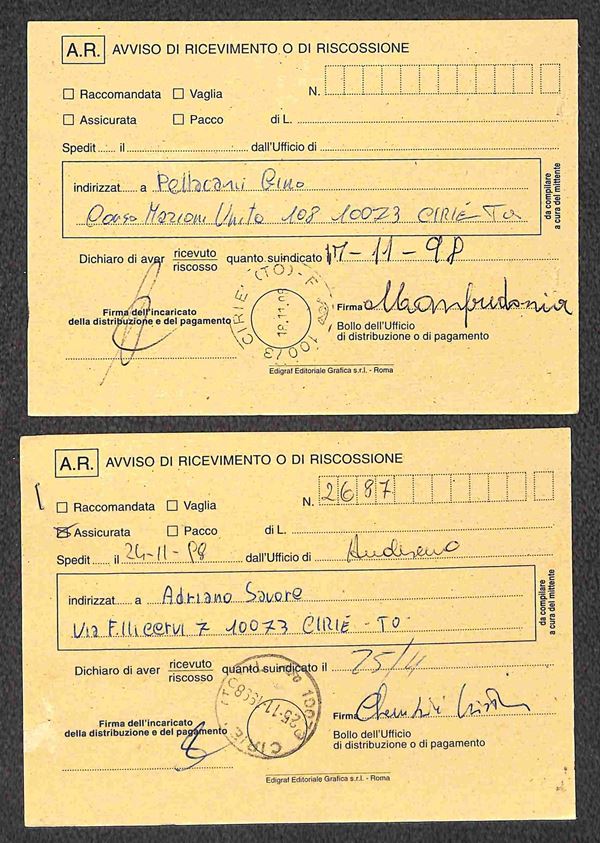 A.R. AVVISO DI RICEVIMENTO O DI RISCOSSIONE
Raccomandata Vaglia N.
Assicurata Pacco di L.
Spedit...... il .............................. dall'Ufficio di
indirizzat...... a Pellacani Gino
Corso 108 10073 CIRIÉ - To
da compilare a cura del mittente
Dichiaro di aver ricevuto riscosso quanto suindicato il 17-11-98
Firma dell'incaricato
della distribuzione e del pagamento
CIRIE' (TO) 10073
18.11.98
Firma Manfredonia
Bollo dell'Ufficio
di distribuzione o di pagamento
Edigraf Editoriale Grafica s.r.l. - Roma
A.R. AVVISO DI RICEVIMENTO O DI RISCOSSIONE
Raccomandata Vaglia N. 2687
Assicurata Pacco di L.
Spedit...... il 24-11-98 dall'Ufficio di
indirizzat...... a Adriano Savore
Via F.lli Cervi 7 10073 CIRIÉ - TO -
da compilare a cura del mittente
Dichiaro di aver ricevuto riscosso quanto suindicato il
Firma dell'incaricato
della distribuzione e del pagamento
CIRIE' 10073
25.11.1998
Firma
Bollo dell'Ufficio
di distribuzione o di pagamento
Edigraf Editoriale Grafica s.r.l. - Roma